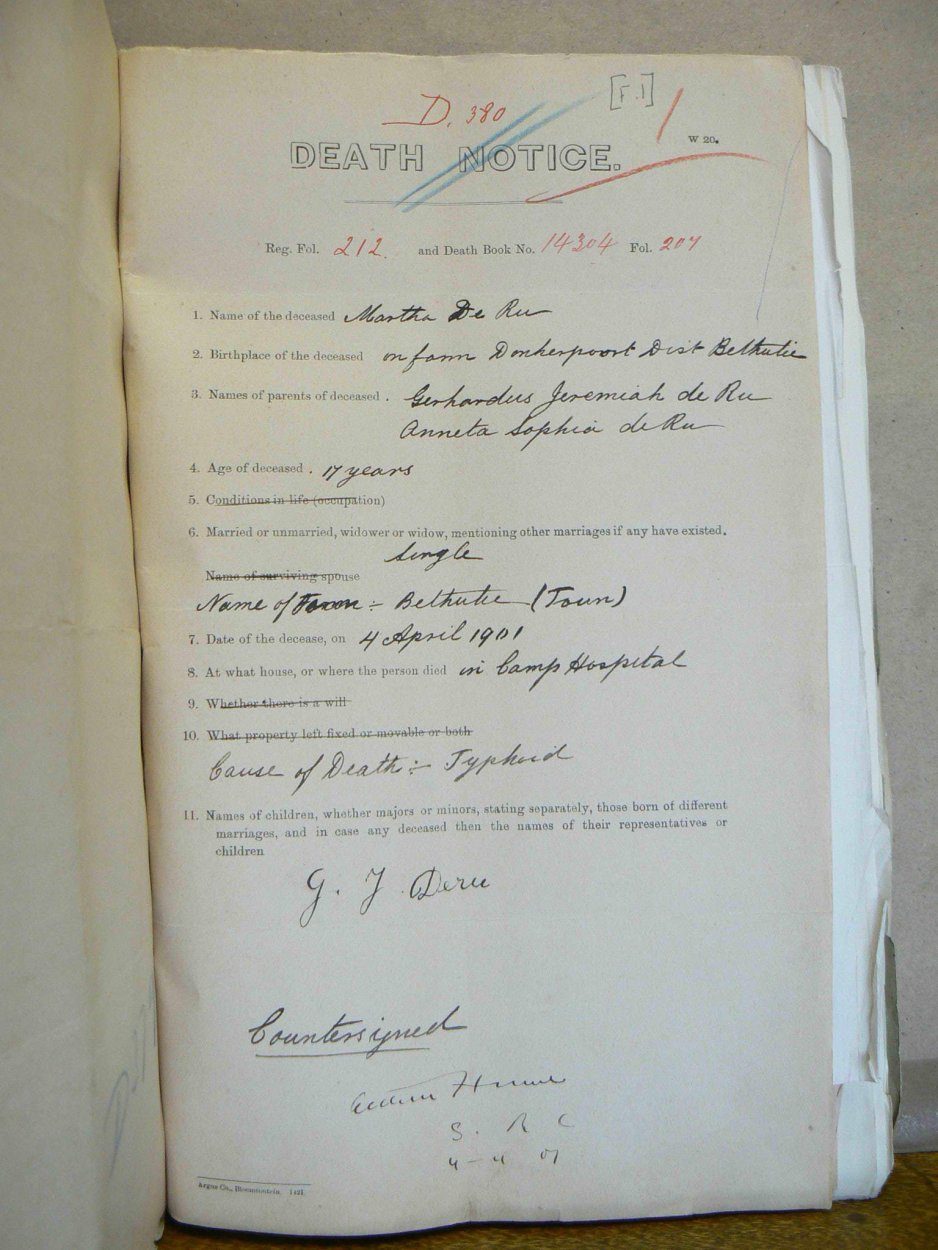 [F.1]
D. 380
W 20.
DEATH NOTICE.
Reg. Fol. 212. and Death Book No. 14304 Fol. 207
1. Name of the deceased Martha De Ru
2. Birthplace of the deceased on farm Donkerpoort Dist Bethulie
3. Names of parents of deceased . Gerhardus Jeremiah de Ru
Anneta Sophia de Ru
4. Age of deceased . 17 years
5. Conditions in life (occupation)
6. Married or unmarried, widower or widow, mentioning other marriages if any have existed.
Single
Name of surviving spouse
Name of Farm :- Bethulie (Town)
7. Date of the decease, on 4 April 1901
8. At what house, or where the person died in Camp Hospital
9. Whether there is a will
10. What property left fixed or movable or both
Cause of Death :- Typhoid
11. Names of children, whether majors or minors, stating separately, those born of different
marriages, and in case any deceased then the names of their representatives or
children
G. J. Deru
Countersigned
S. R C
4-4 01
Argus Co., Bloemfontein. 1421.